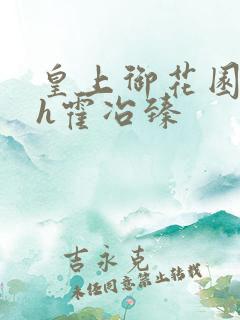 皇上御花园
h霍冶臻
吉永克
未经同意禁止转载